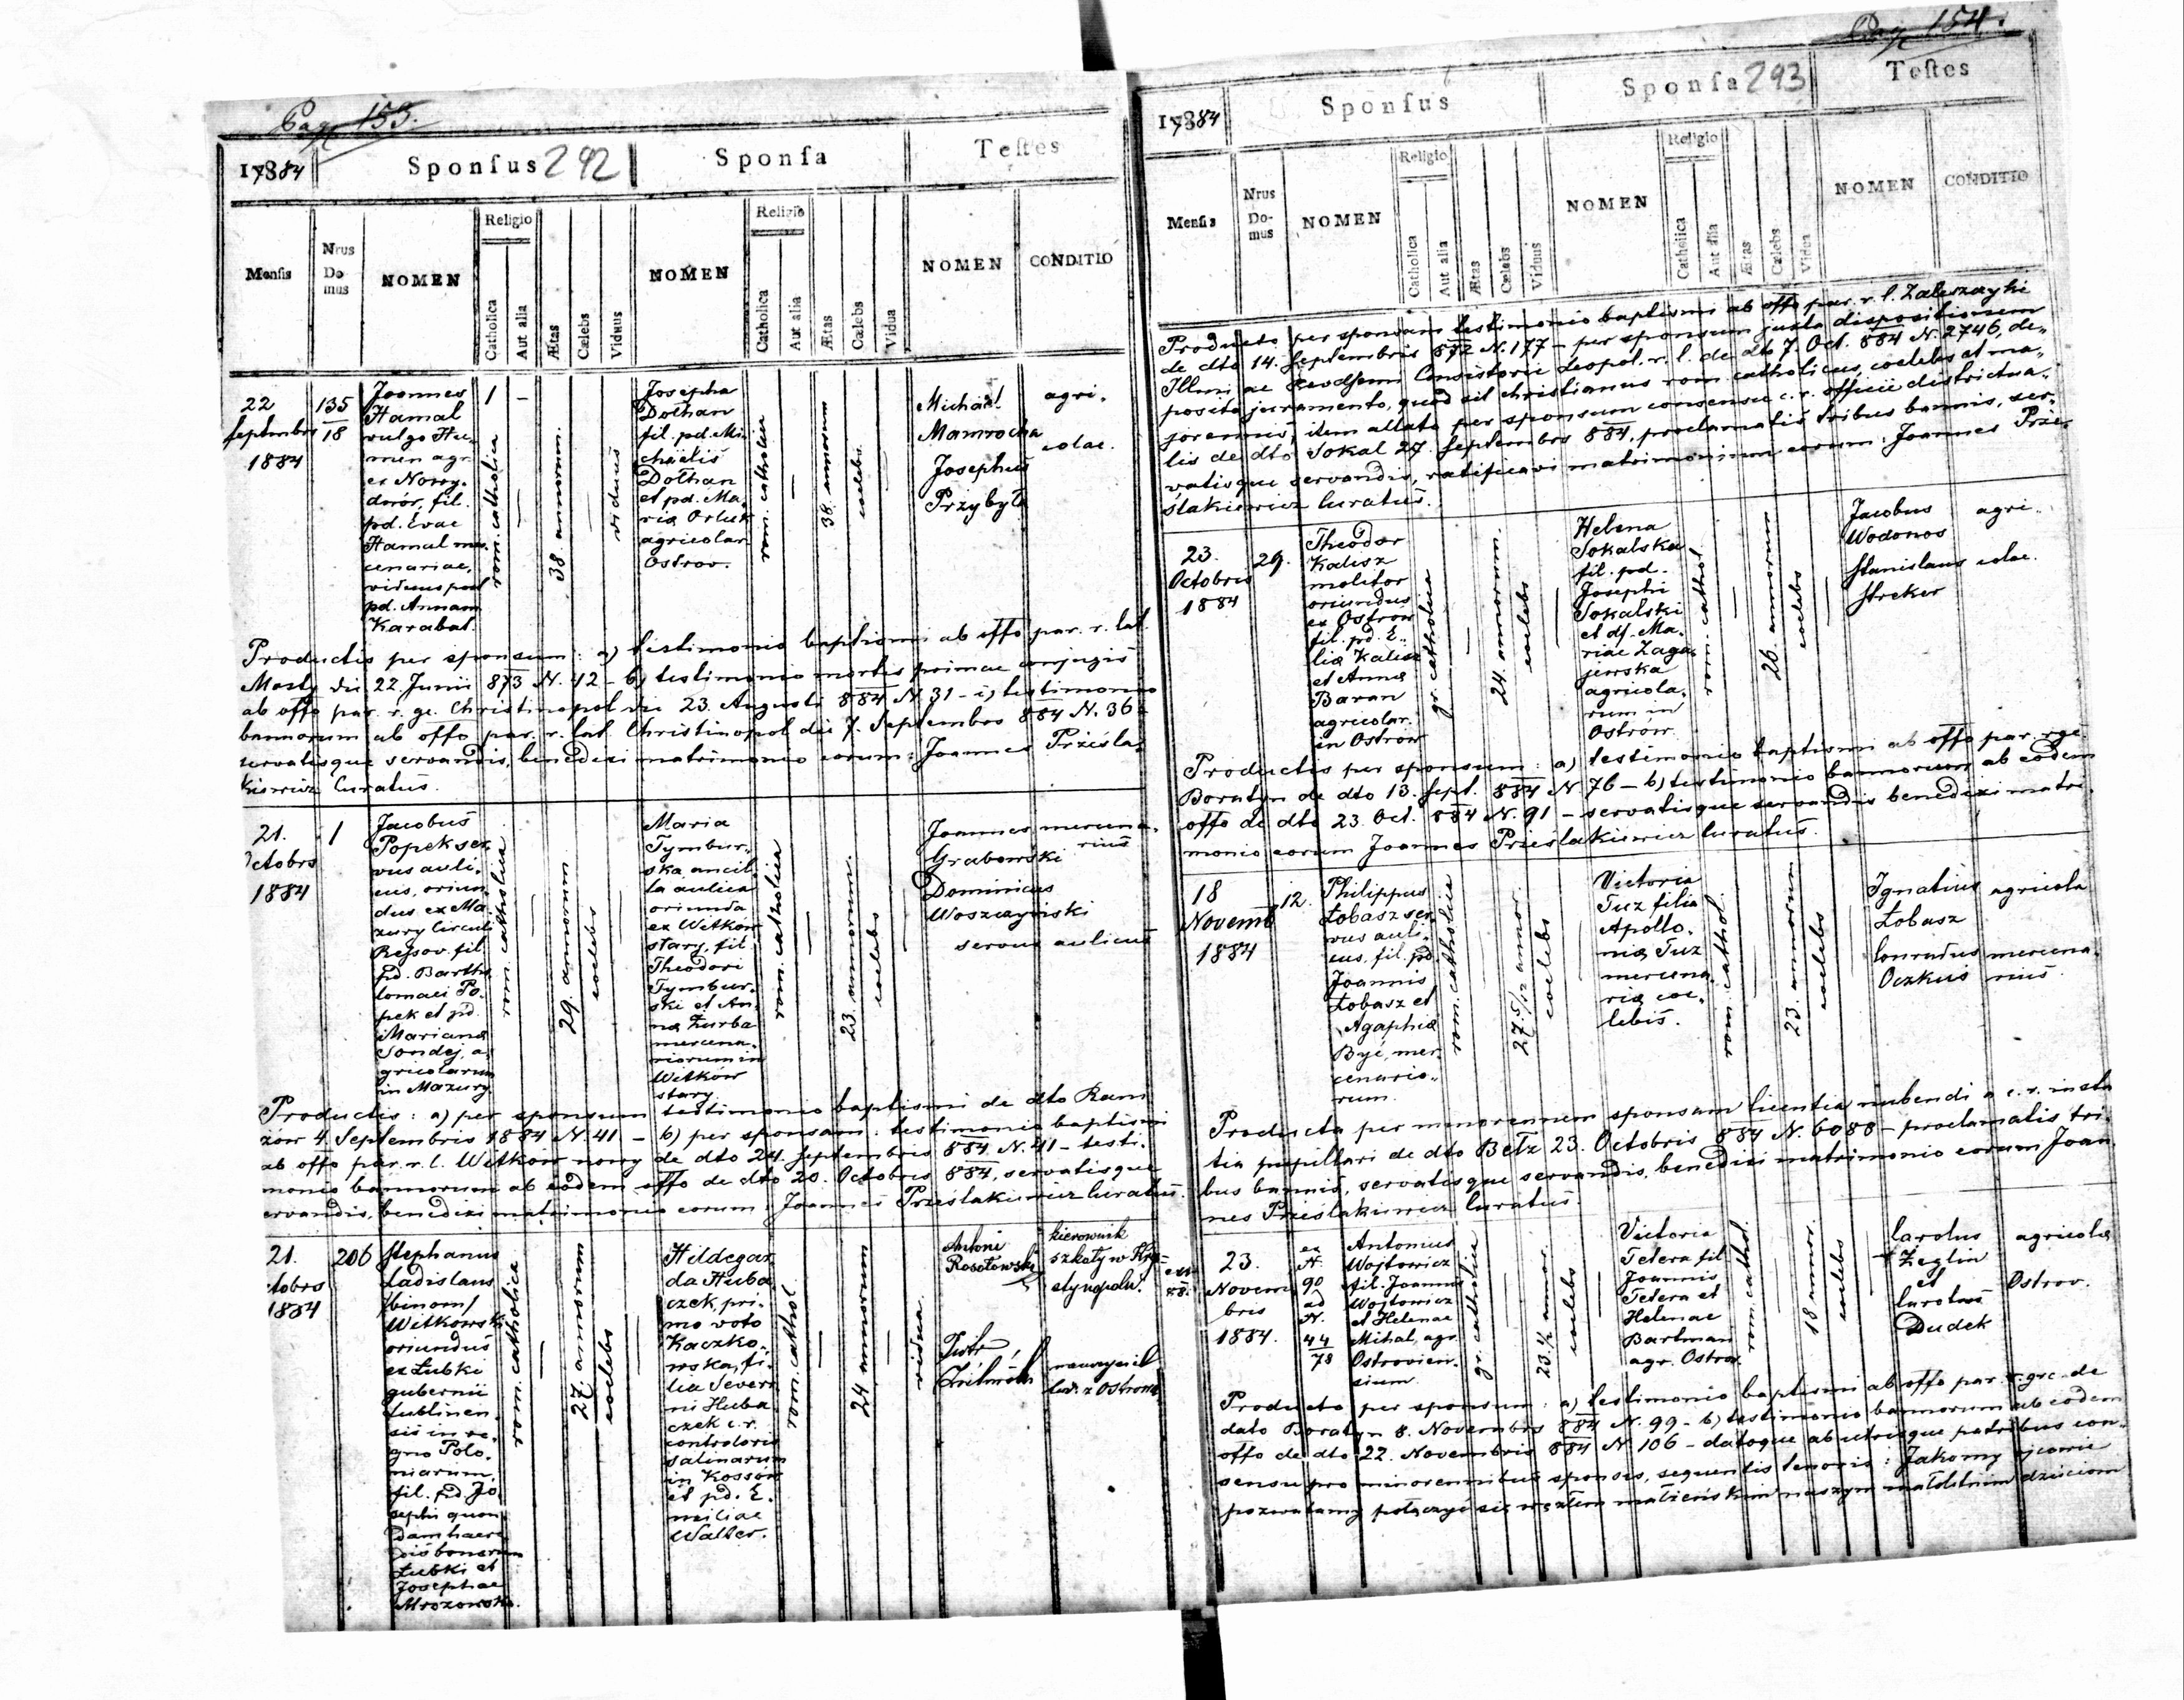 Pag. 153.
17884
Sponsus 292
Sponsa
Testes
Mensis
Nrus Do mus
NOMEN
Religio
Catholica
Aut alia
Ætas
Cælebs
Viduus
NOMEN
Religio
Catholica
Aut alia
Ætas
Cælebs
Vidua
NOMEN
CONDITIO
22
Septembris
1884
135
18
Joannes
Hamal
vulgo Hu-
men agr.
ex Nowy-
dwór, fil.
pd. Evae
Hamal mer-
cenariae,
viduus post
pd. Annam
Karabat.
1 -
rom. catholica
38 annorum
viduus
Josepha
Dołhan
fil. pd. Mi-
chaëlis
Dołhan
et pd. Ma-
ria Orluk
agricolar.
Ostrov.
rom. catholica
38 annorum
coelebs
Michael
Mamrocha
Josephus
Przybyło
agri-
colae.
Productis per sponsum: a) testimonio baptismi ab offo par. r. lat.
Mosty dei 22. Junii 873 N. 42 - b) testimonio mortis primae conjugis
ab offo par. r. gc. Christinopol dei 23. Augusti 884 N. 31 - c) testimonio
bannorum ab offo par. r. lat. Christinopol dei 7. Septembris 884 N. 36 -
servatisque servandis, benedixi matrimonio eorum: Joannes Prześla-
kiewicz Curatus.
21.
Octobris
1884
1
Jacobus
Popek ser-
vus auli-
cus, oriun-
dus ex Ma-
zury Circuli
Resov. fil.
pd. Bartho
lomaei Po-
pek et pd.
Mariana
Sondej, a-
gricolarum
in Mazury.
rom. catholica
29. annorum
coelebs
Maria
Tymbur-
ska ancil-
la aulica
oriunda
ex Witków
stary, fil.
Theodori
Tymbur-
ski et An-
na Żurba
mercena-
riorum in
Witków
stary.
rom. catholica
23. annorum
coelebs
Joannes
Grabowski
mercena-
rius
Dominicus
Woszczyński
servus aulicus
Productis: a) per sponsum testimonio baptismi de dto Rani
zow 4. Septembris 1884 N. 41. - b) per sponsam: testimonio baptismi
ab offo par. r. l. Witków nowy de dto 24. Septembris 884 N. 41 - testi-
monio bannorum ab eodem offo de dto 20. Octobris 884, servatisque
servandis, benedixi matrimonio eorum: Joannes Prześlakiewicz Curatus.
21.
ctobris
1884
206
Stephanus
Ladislaus
/binom/
Witkowski
oriundus
ex Łubki
gubernii
Lublinen-
sis in re-
gno Polo-
niarum,
fil. pd. Jo-
sephi quon-
dam haere-
dis bonorum
Łubki et
Josephae
Mrozowska.
rom. catholica
27. annorum
coelebs
Hildegar
da Huba
czek, pri-
mo voto
Kaczko-
wska, fi-
lia Severi
ni Huba
czek c. r.
controloris
salinarum
in Kossów
et pd. E-
miliae
Walter.
rom. cathol.
24 annorum
vidua
Antoni
Rosołowski
kierownik
szkoły w Kry-
stynopolu.
Piotr
nauczyciel
lud. z Ostrowa
Pag. 154.
17884
Sponsus
Sponsa 293
Testes
Mensis
Nrus Do- mus
NOMEN
Religio
Catholica
Aut alia
Ætas
Cælebs
Viduus
NOMEN
Religio
Catholica
Aut alia
Ætas
Cælebs
Vidua
NOMEN
CONDITIO
Producto per sponsam testimonio baptismi ab offo par. r. l. Zaleszczyki
de dto 14. Septembris 872 N. 177 - per sponsum juxta dispositionem
Illmi ac Rvdssmi Consistorii Leopol. r. l. de dto 7. Oct. 884 N. 2746, de-
posito juramento, quod sit christianus rom. catholicus, coelebs et ma-
jorennis, item allato per sponsum consensu c. r. officii districtua-
lis de dto Sokal 27. Septembris 884, proclamatis tribus bannis, ser-
vatisque servandis, ratificavi matrimonium eorum: Joannes Prze-
ślakiewicz Curatus.
23.
Octobris
1884
29.
Theodor
Kalisz
molitor
oriundus
ex Ostrów
fil. pd. E-
lia Kalisz
et Anna
Baran
agricolar.
in Ostrów
gr. catholica
24. annorum
coelebs
Helena
Sokalska
fil. pd.
Josephi
Sokalski
et df. Ma-
riae Zaga-
jewska
agricola-
rum in
Ostrów.
rom. cathol.
26 annorum
coelebs
Jacobus
Wodonos
Stanislaus
Streker
agri-
colae.
Productis per sponsum: a) testimonio baptismi ab offo par. r. gc.
Boratyn de dto 13. Sept. 884 N. 76 - b) testimonio bannorum ab eodem
offo de dto 23. Oct. 884 N. 91 - servatisque servandis benedixi matri-
monio eorum Joannes Prześlakiewicz Curatus.
18
Novemb
1884
12.
Philippus
Łobasz ser-
vus auli-
cus, fil. pd.
Joannis
Łobasz et
Agaphia
Być, mer-
cenario-
rum.
rom. catholica
27. 5/12 annor.
coelebs
Victoria
Tuz filia
Apollo-
nia Tuz
mercena-
ria coe-
lebis.
rom. cathol.
23. annorum
coelebs
Ignatius
Łobasz
agricola
Conradus
Oczkus
mercena-
rius.
Producta per minorennem sponsam licentia nubendi a c. r. instan
tia pupillari de dto Bełz 23. Octobris 884 N. 6088 - proclamatis tri-
bus bannis, servatisque servandis, benedixi matrimonio eorum Joan-
nes Prześlakiewicz Curatus.
23.
Novem-
bris
1884.
ex
N.
90
ad
N.
44
78
Antonius
Wojtowicz
fil. Joannis
Wojtowicz
et Helenae
Mihal, agr.
Ostrovien-
sium.
gr. catholica
23 1/2 annor.
coelebs
Victoria
Tetera fil.
Joannis
Tetera et
Helenae
Bartman
agr. Ostrov.
rom. cathol.
18 annor.
coelebs
Carolus
Żeglin
et
Carolus
Dudek
agricolae
Ostrov.
Producto per sponsum: a) testimonio baptismi ab offo par. r. grc. de
dato Boratyn 8. Novembris 884 N. 99 - b) testimonio bannorum ab eodem
offo de dto 22. Novembris 884 N. 106 - datoque ab utrisque patribus con-
sensu pro minorennibus sponsis, sequentis tenoris: Jakomy ojcowie
pozwalamy połączyć się węzłem małżeńskim naszym małoletnim dzieciom